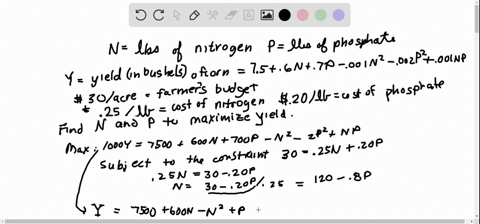 N= lbs of nitrogen P= lbs of phosphate
Y= yield (in bushels) of corn = 7.5+.6N+.7P-.001N²-.002P²+.001NP
$30/acre = farmer's budget
$.25/lb = cost of nitrogen $.20/lb = cost of phosphate
Find N and P to maximize yield.
Max: 1000Y = 7500 + 600N+700P-N²-2P²+NP
subject to the constraint 30=.25N+.20P
.25N=30-.20P
N= 30-.20P/.25 = 120-.8P
Y = 7500+600N-N²+P